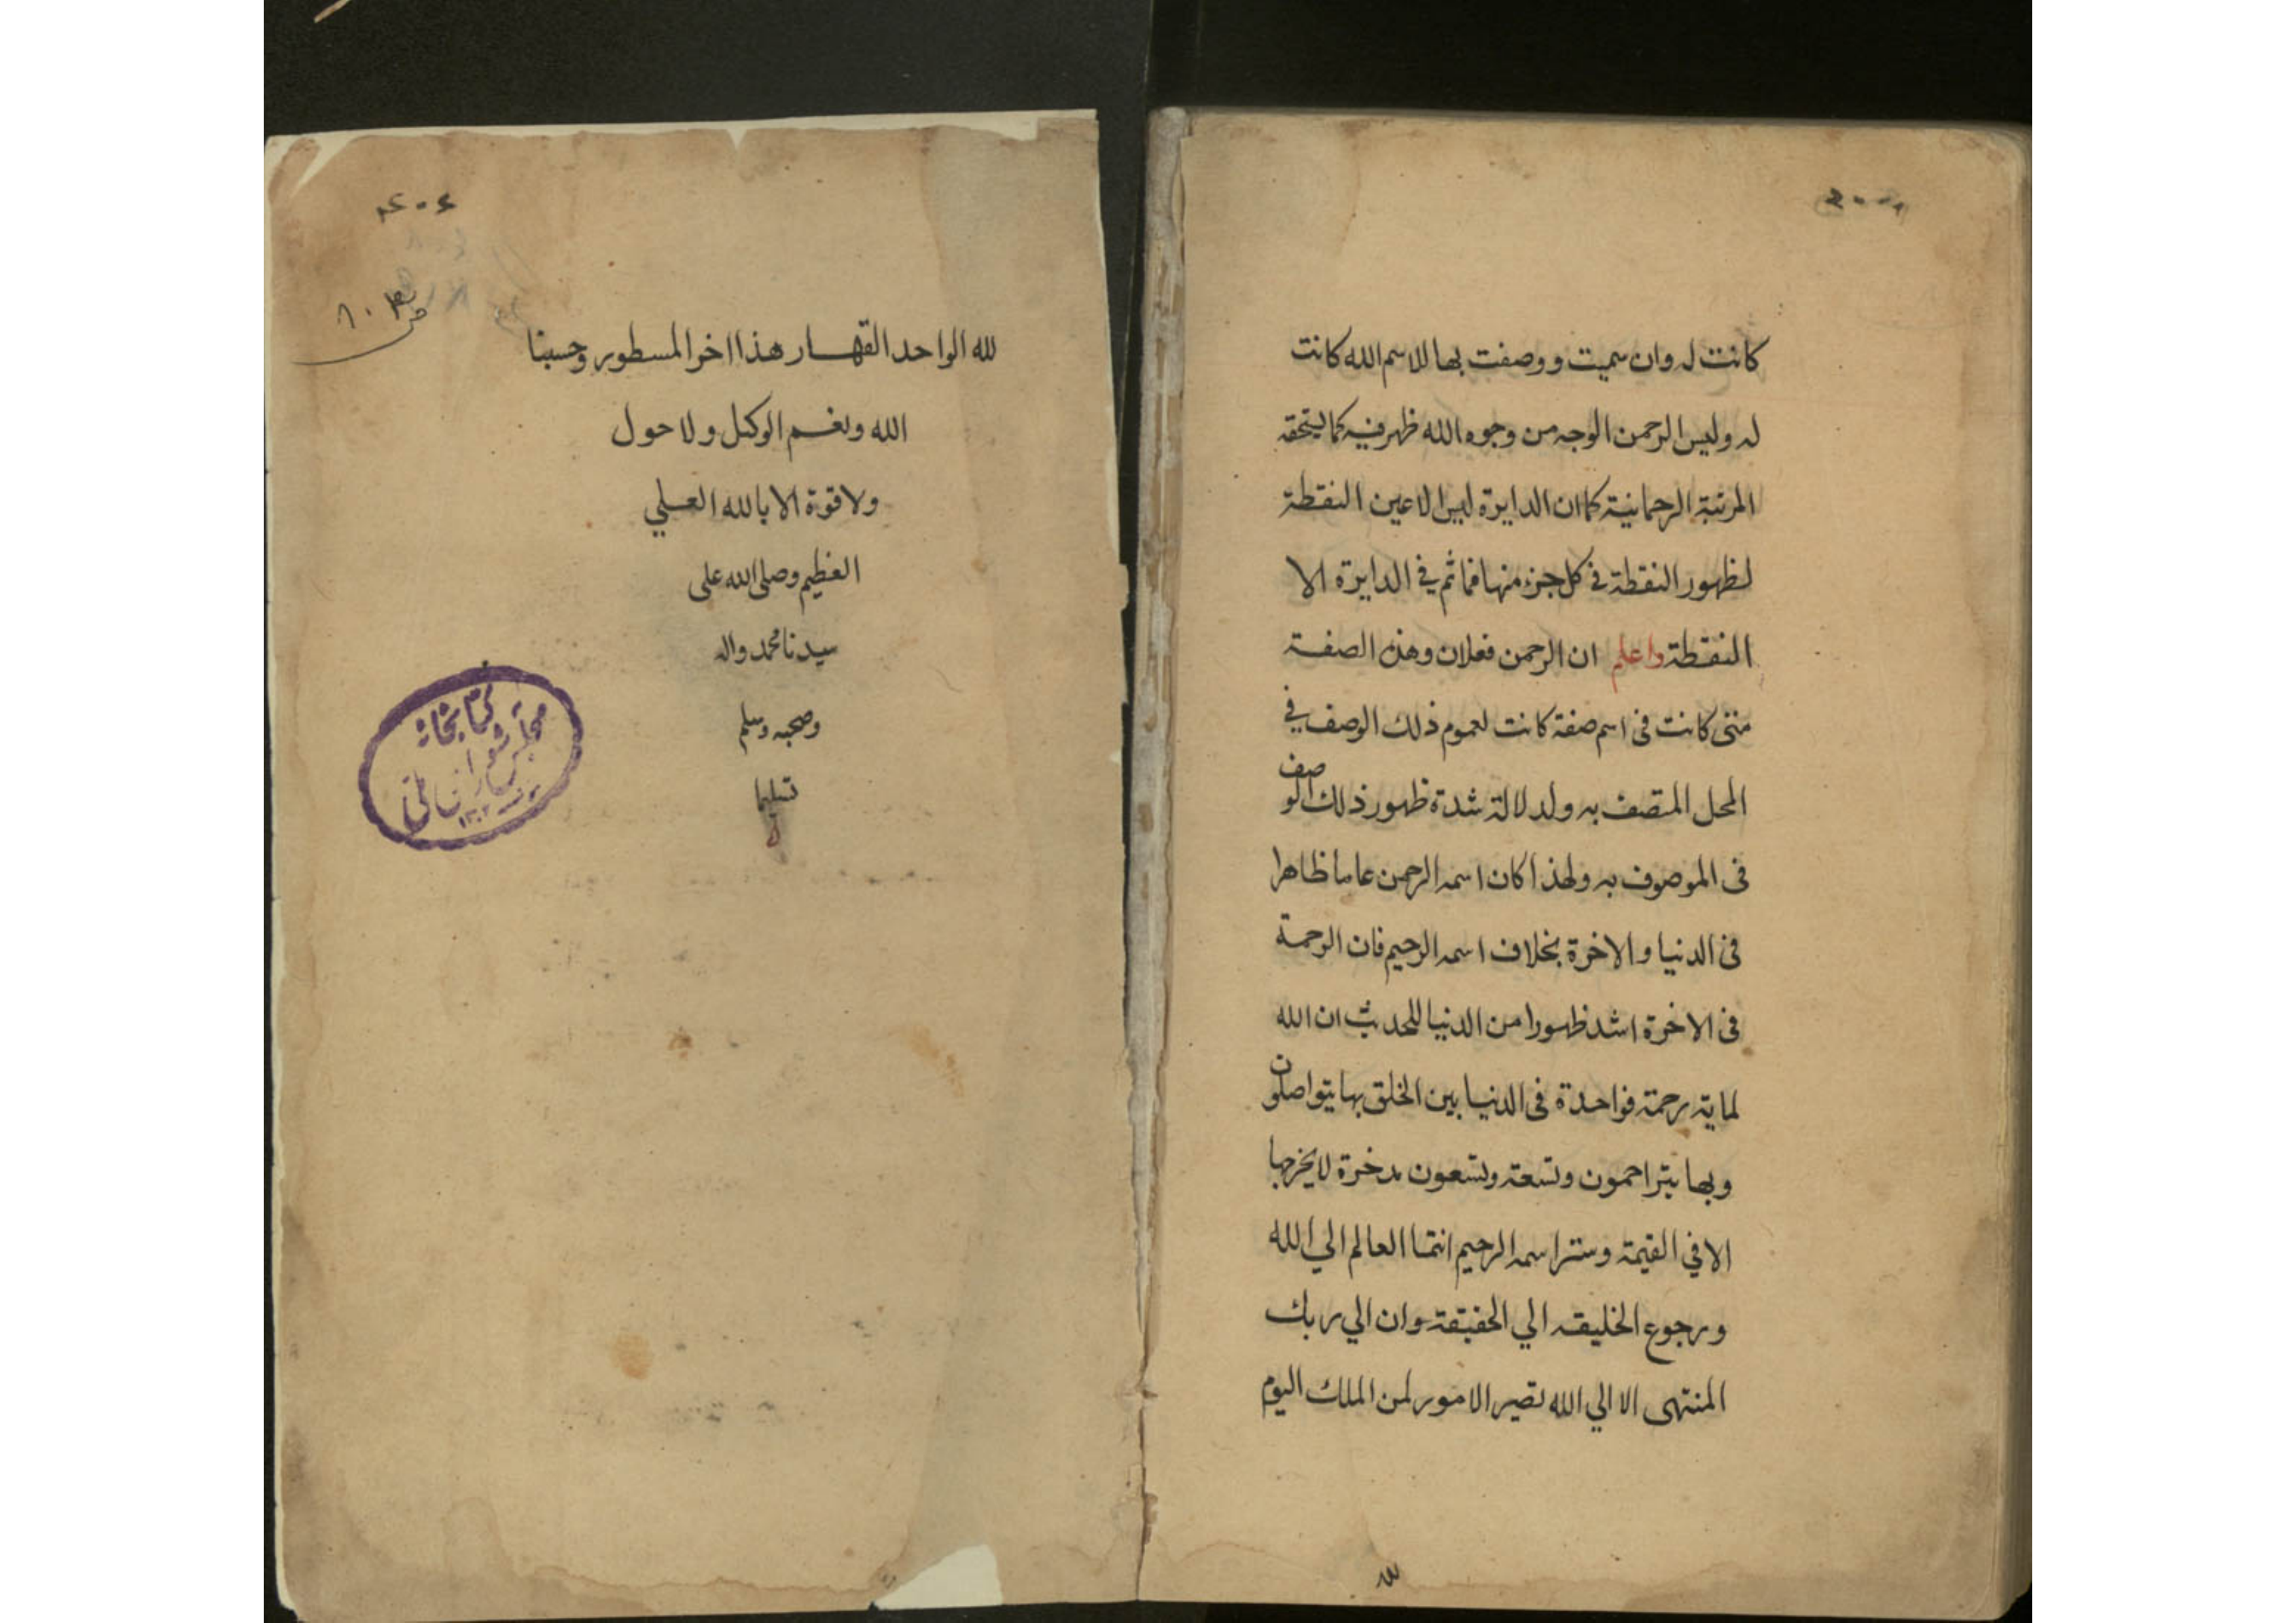 كانت له وان سميت ووصفت بها للاسم الله كانت
له وليس الرحمن الا وجه من وجوه الله ظهر فيه كما يستحقه
المرتبة الرحمانية كما ان الدايرة ليس الا عين النقطة
لظهور النقطة في كل جزء منها فما ثم في الدايرة الا
النقطة واعلم ان الرحمن فعلان وهذه الصفة
متى كانت في اسم صفة كانت لعموم ذلك الوصف في
المحل المتصف به ولدلالة شدة ظهور ذلك الوصف
في الموصوف به ولهذا كان اسمه الرحمن عاما ظاهرا
في الدنيا والاخرة بخلاف اسمه الرحيم فان الرحمة
في الاخرة اشد ظهورا من الدنيا للحديث ان الله
لماية رحمة فواحدة في الدنيا بين الخلق بها يتواصلون
وبها يتراحمون وتسعة وتسعون مدخرة لا يخرجها
الا في القيمة وستر اسمه الرحيم انتما العالم الي الله
ورجوع الخليقه الي الحقيقة وان الي ربك
المنتهى الا الي الله تصير الامور لمن الملك اليوم
لله الواحد القهار هذا اخر المسطور وحسبنا
الله ونعم الوكيل ولا حول
ولا قوة الا بالله العلي
العظيم وصلى الله على
سيدنا محمد واله
وصحبه وسلم
تسليما
كتابخانه
مجلس شورای ملی